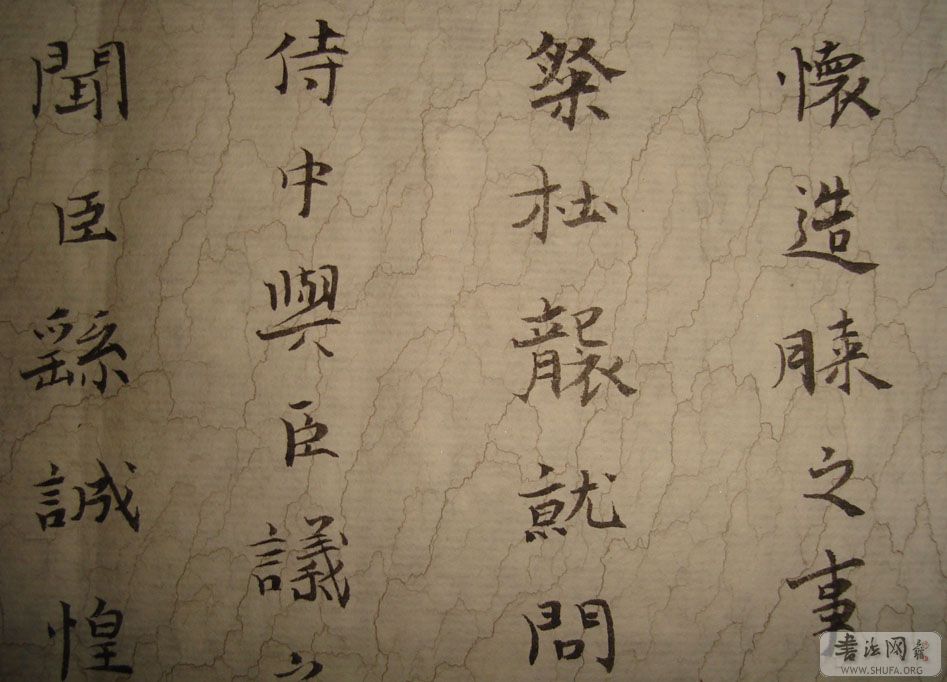 懷造膝之事
粲杜襲就問
侍中與臣議
聞臣繇誠惶
書法网
WWW.SHUFA.ORG